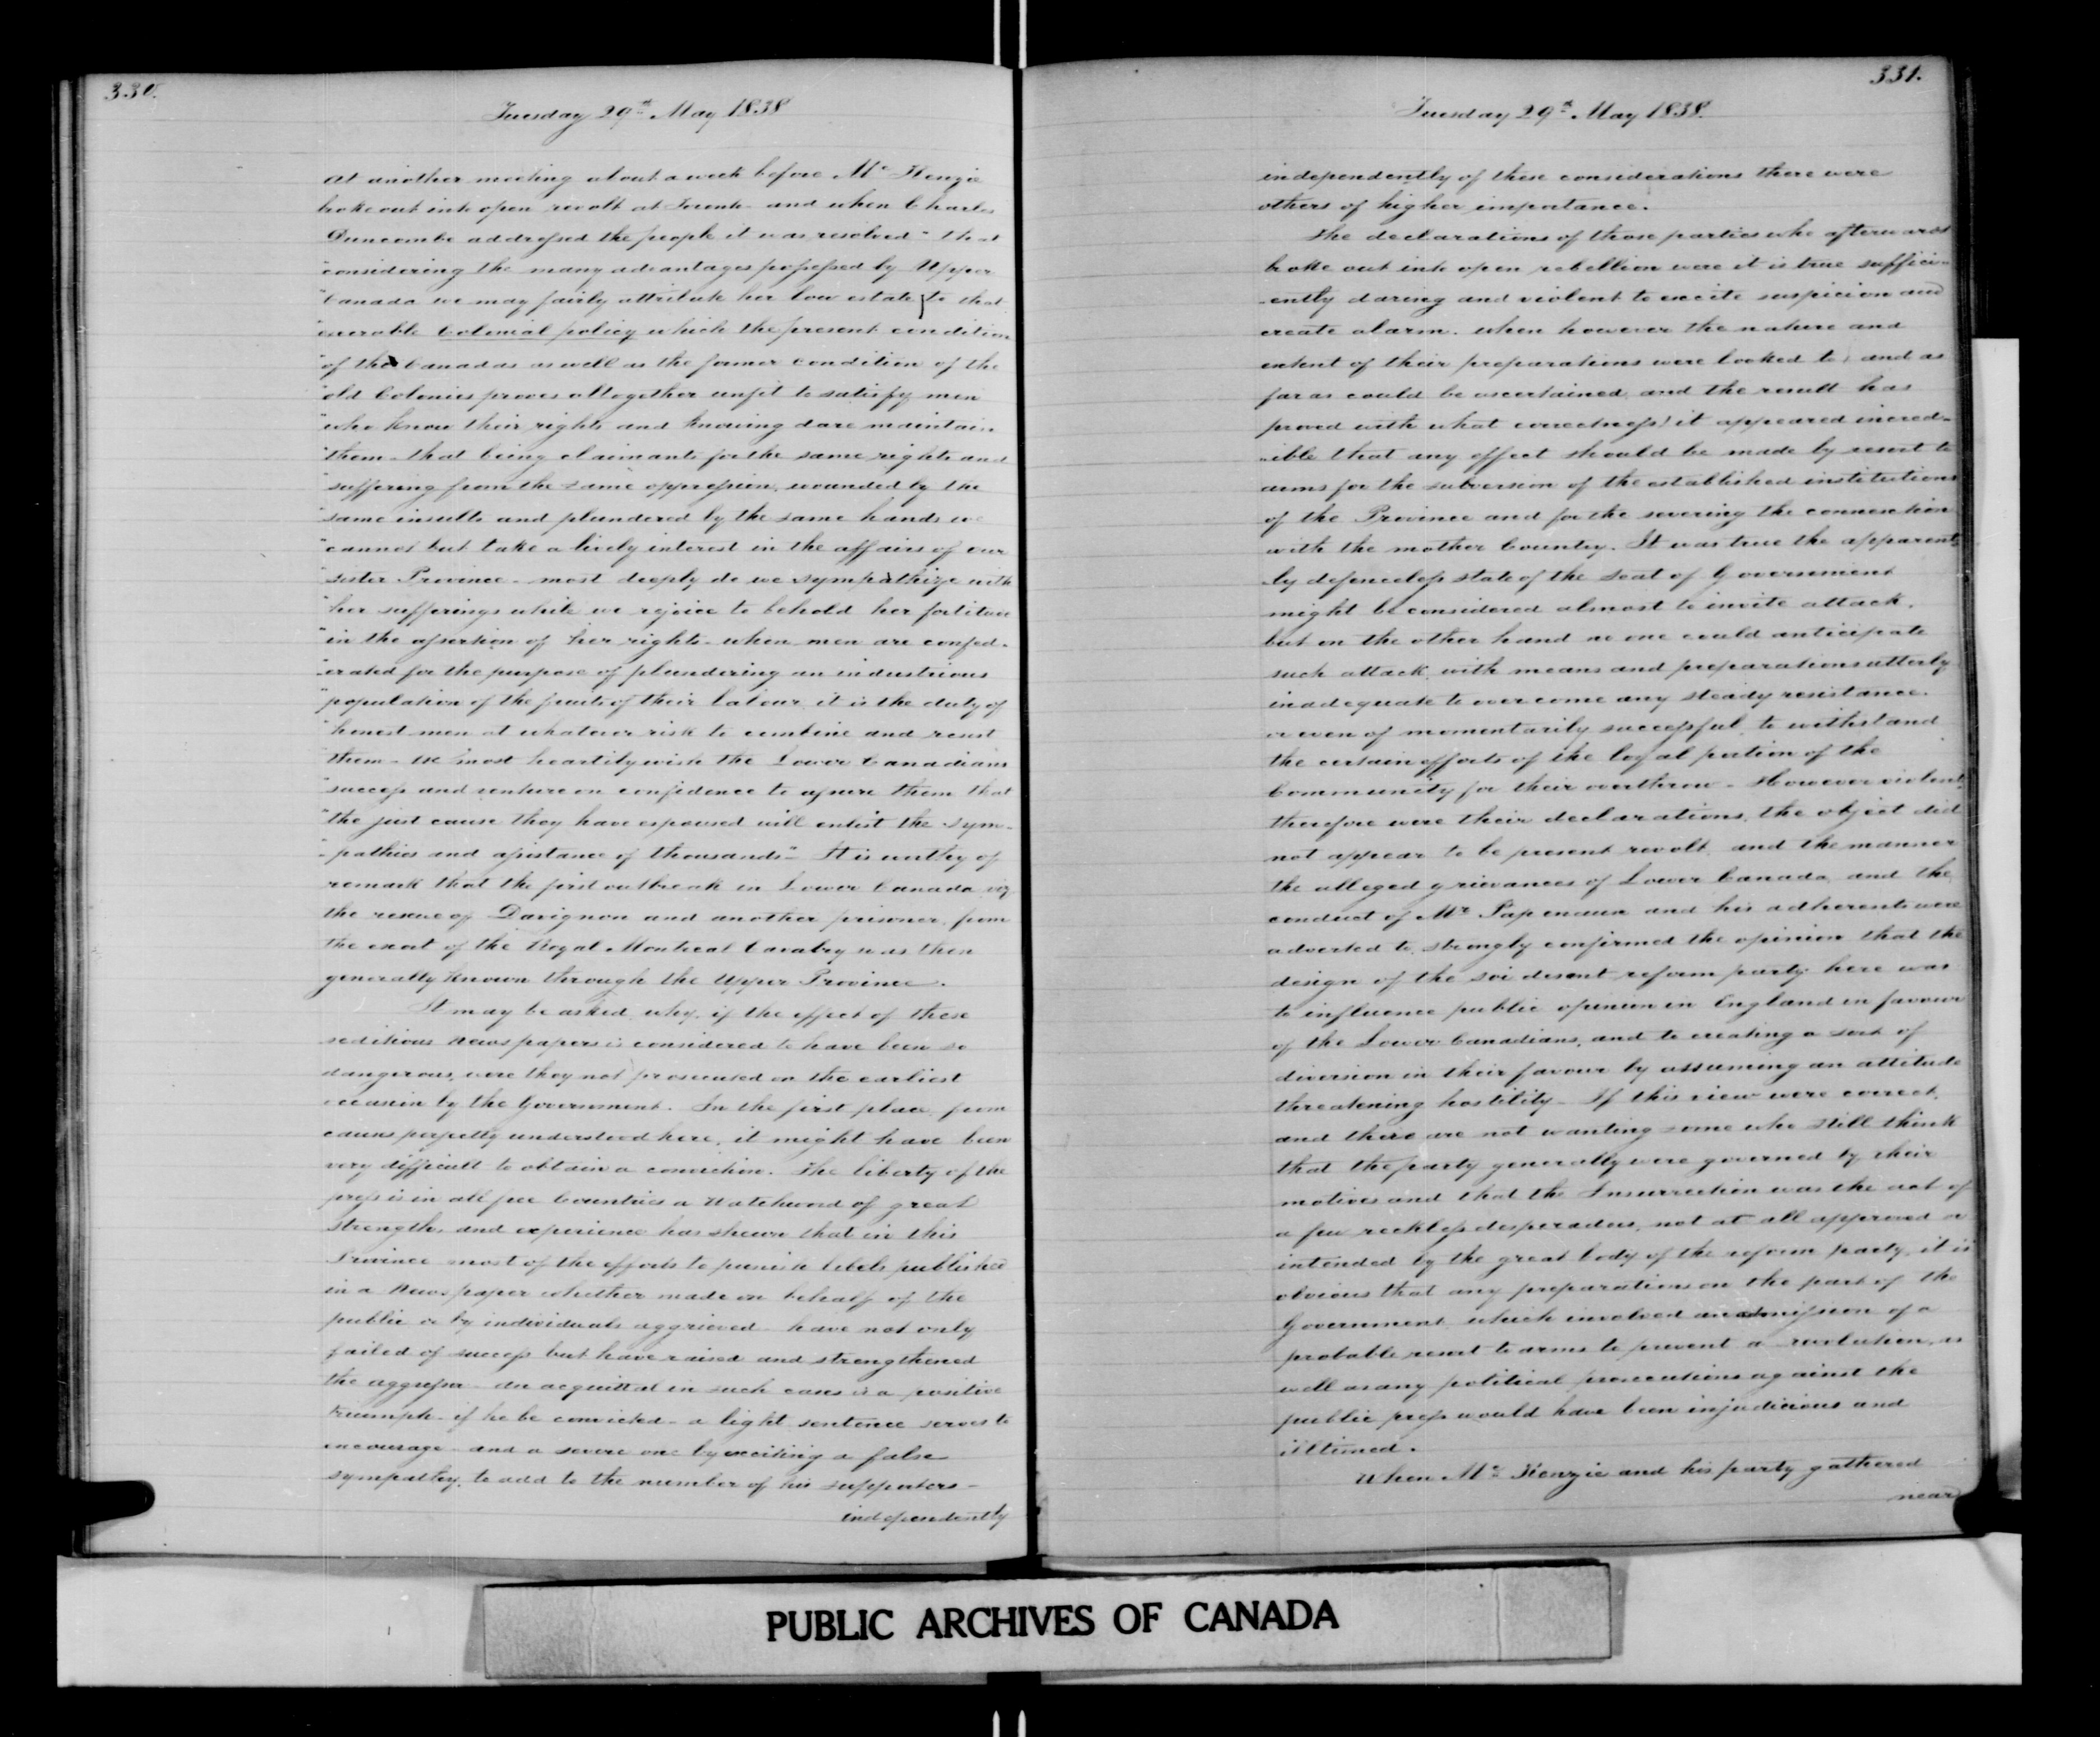 330.
Tuesday 29th May 1838
At another meeting about a week before Mc Kenzie
broke out into open revolt at Toronto and when Charles
Duncombe addressed the people it was resolved "that
"considering the many advantages possessed by Upper
"Canada we may fairly attribute her low estate to that
"execrable Colonial policy which the present condition
"of the Canadas as well as the former condition of the
"old Colonies proves altogether unfit to satisfy men
"who know their rights and knowing dare maintain
"them - that being claimants for the same rights and
"suffering from the same oppression, wounded by the
"same insults and plundered by the same hands we
"cannot but take a lively interest in the affairs of our
"sister Province - most deeply do we sympathize with
"her sufferings while we rejoice to behold her fortitude
"in the assertion of her rights - when men are confed-
"erated for the purpose of plundering an industrious
"population of the fruits of their labour, it is the duty of
"honest men at whatever risk to combine and resist
"them - We most heartily wish the Lower Canadians
"success and venture on confidence to assure them that
"the just cause they have espoused will enlist the sym-
"-pathies and assistance of thousands" - It is worthy of
remark that the first outbreak in Lower Canada viz
the rescue of Davignon and another prisoner, from
the escort of the Royal Montreal Cavalry was then
generally known through the Upper Province.
It may be asked, why, if the effect of these
seditious Newspapers is considered to have been so
dangerous, were they not prosecuted on the earliest
occasion by the Government. In the first place, from
causes perfectly understood here, it might have been
very difficult to obtain a conviction. The liberty of the
press is in all free Countries a Watchword of great
strength, and experience has shewn that in this
Province most of the efforts to punish libels published
in a Newspaper whether made on behalf of the
public or by individuals aggrieved - have not only
failed of success but have raised and strengthened
the aggressor - An acquittal in such cases is a positive
triumph - if he be convicted - a light sentence serves to
encourage - and a severe one by exciting a false
sympathy, to add to the number of his supporters -
independently
331.
Tuesday 29th May 1838.
independently of these considerations there were
others of higher importance.
The declarations of those parties who afterwards
broke out into open rebellion were it is true suffici-
-ently daring and violent to excite suspicion and
create alarm. When however the nature and
extent of their preparations were looked to, and as
far as could be ascertained, and the result has
proved with what correctness) it appeared incred-
-ible that any effect should be made by resort to
arms for the subversion of the established institutions
of the Province and for the severing the connexion
with the mother Country. It was true the apparent-
ly defenceless state of the Seat of Government
might be considered almost to invite attack,
but on the other hand no one could anticipate
such attack, with means and preparations utterly
inadequate to overcome any steady resistance.
or even of momentarily successful, to withstand
the certain efforts of the loyal portion of the
Community for their overthrow - However violent
therefore were their declarations, the object did
not appear to be present revolt, and the manner
the alleged grievances of Lower Canada, and the
conduct of Mr Papineau and his adherents were
adverted to, strongly confirmed the opinion that the
design of the soi disant reform party here was
to influence public opinion in England in favour
of the Lower Canadians, and to creating a sort of
diversion in their favour by assuming an attitude
threatening hostility - If this view were correct,
and there are not wanting some who still think
that the party generally were governed by their
motives and that the Insurrection was the act of
a few reckless desperadoes, not at all approved or
intended by the great body of the reform party, it is
obvious that any preparations on the part of the
Government which involved an admission of a
probable resort to arms to prevent a revolution, as
well as any political prosecutions against the
public press would have been injudicious and
illtimed.
When Mc Kenzie and his party gathered
near
PUBLIC ARCHIVES OF CANADA